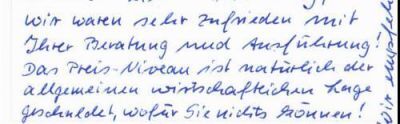 Wir waren sehr zufrieden mit
Ihrer Beratung und Ausführung!
Das Preis-Niveau ist natürlich der
allgemeinen wirtschaftlichen Lage
geschuldet, wofür Sie nichts können!
Wir